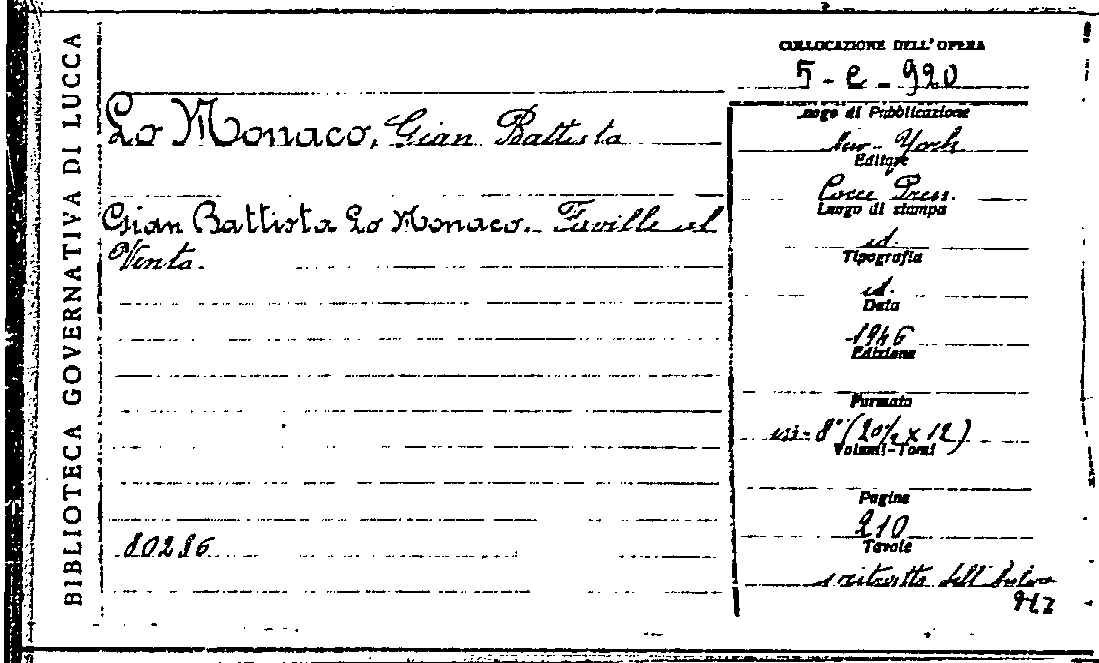 BIBLIOTECA GOVERNATIVA DI LUCCA
COLLOCAZIONE DELL'OPERA
5-e-920
Lo Monaco, Gian Battista
Gian Battista Lo Monaco. Faville al
Vento.
80286
Luogo di Pubblicazione
New-York
Editore
Cocce Press.
Luogo di stampa
id.
Tipografia
id.
Data
1946
Edizione
Formato
in-8° (20½ x 12)
Volumi-Tomi
Pagine
210
Tavole
ritratto dell'